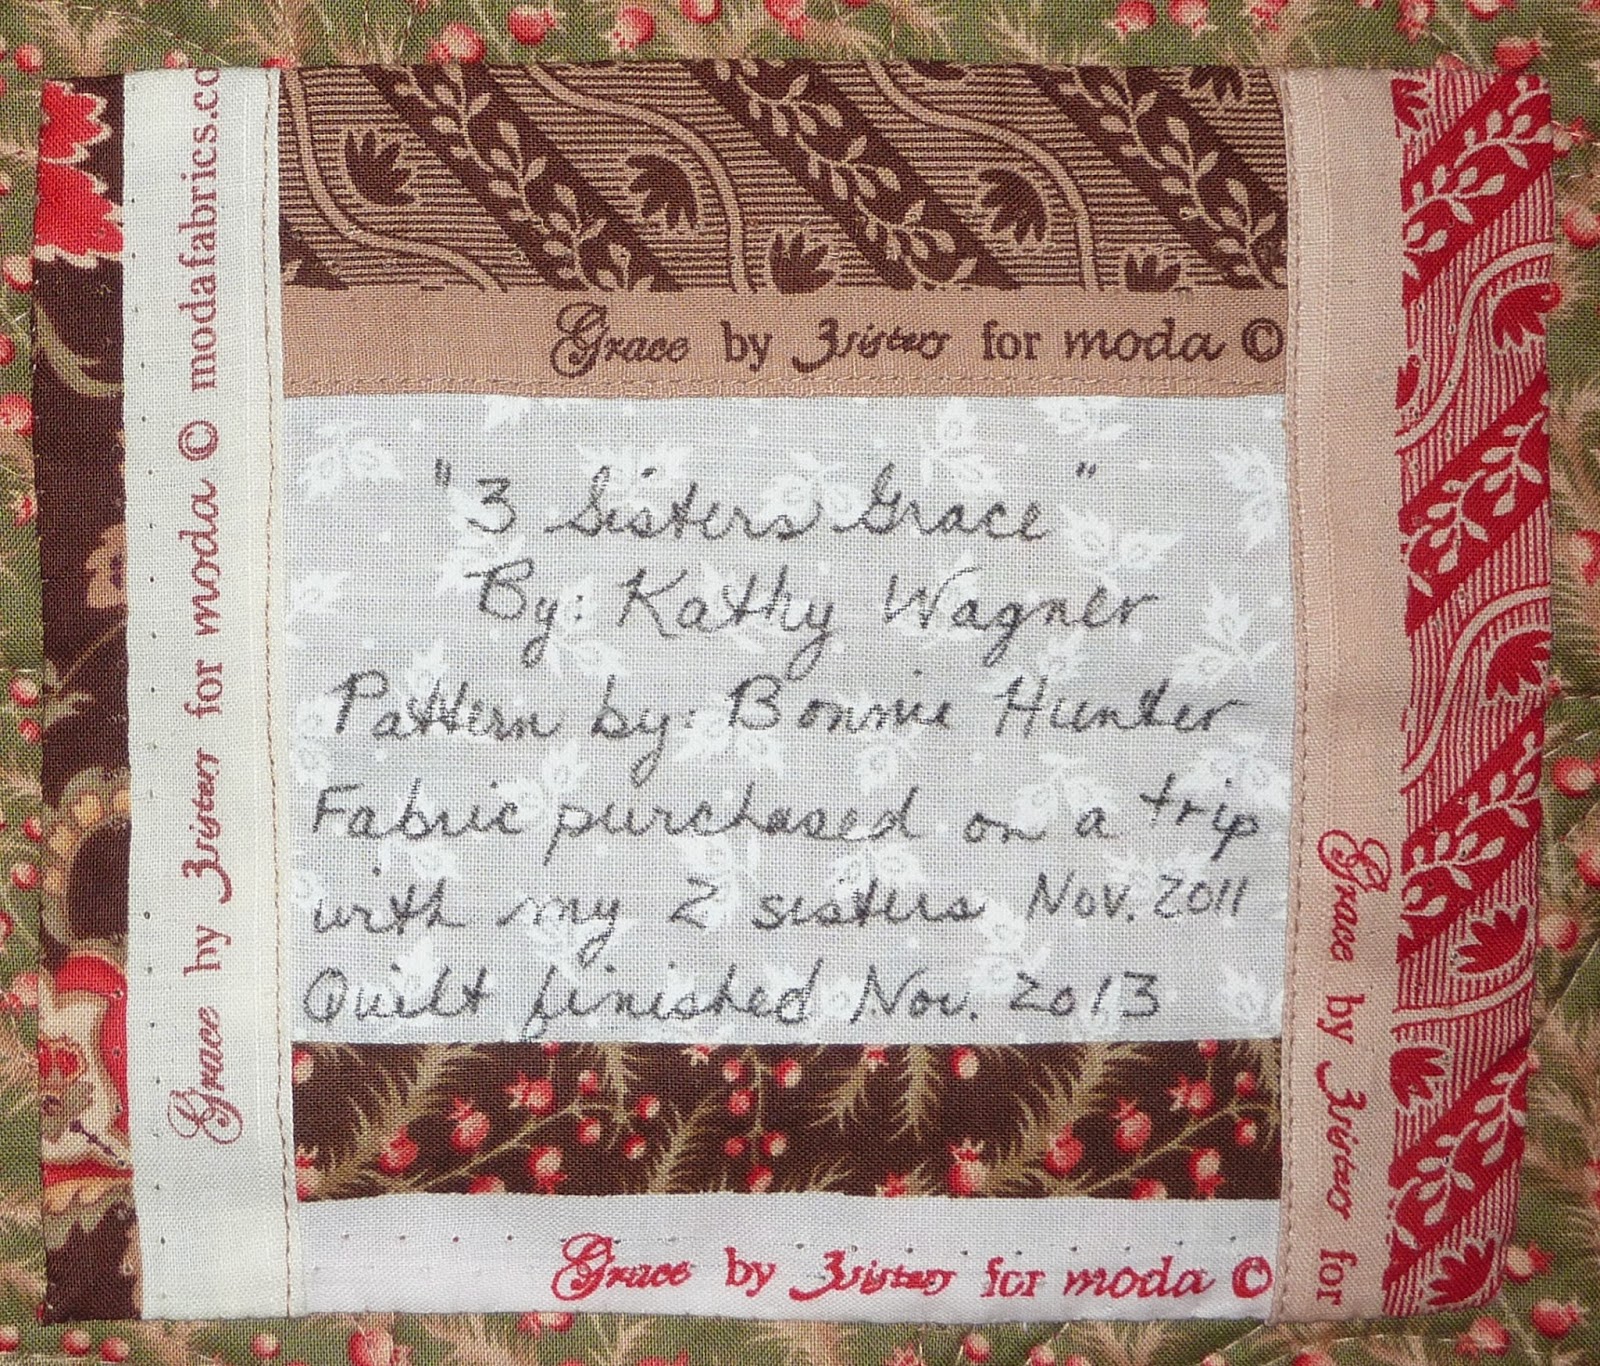 Grace by 3 sisters for moda © modafabrics.co
Grace by 3 sisters for moda ©
"3 Sisters Grace"
By: Kathy Wagner
Pattern by: Bonnie Hunter
Fabric purchased on a trip
with my 2 sisters Nov. 2011
Quilt finished Nov. 2013
Grace by 3 sisters for moda ©
Grace by 3 sisters for